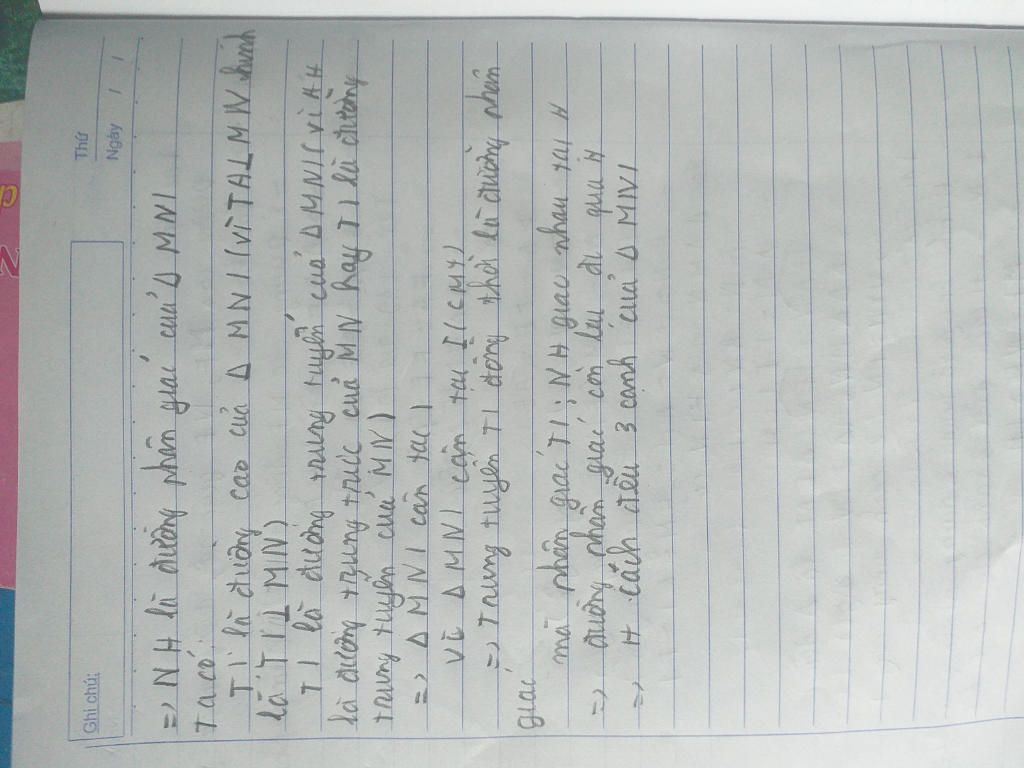 Thứ
Ngày / /
Ghi chú:
=> NH là đường phân giác của Δ MNI
Ta có
TI là đường cao của Δ MNI (vì TA⊥MN hình
là TI⊥MN)
TI là đường trung tuyến của ΔMNI (vì AH
là đường trung trực của MN hay TI là đường
trung tuyến của MN)
=> Δ MNI cân tại I
Vì Δ MNI cân tại I (cmt)
=> Trung tuyến TI đồng thời là đường phân
giác
mà phân giác TI; NH giao nhau tại H
=> đường phân giác còn lại đi qua H
=> H cách đều 3 cạnh của Δ MNI